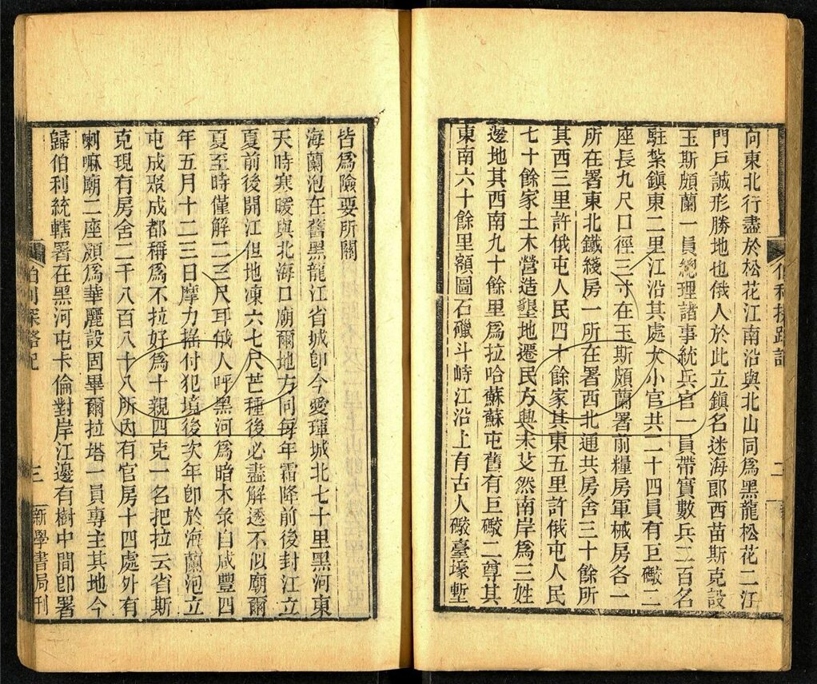 向東北行盡於松花江南沿與北山同爲黑龍松花二江
門戸誠形勝地也俄人於此立鎮名迷海郎西苗斯克設
玉斯頗蘭一員總理諸事統兵官一員帶實數兵二百名
駐紮鎮東二里江沿其處大小官共二十四員有巨礮二
座長九尺口徑三寸在玉斯頗蘭署前糧房軍械房各一
所在署東北鐵綫房一所在署西北通共房舍三十餘所
其西三里許俄屯人民四十餘家其東五里許俄屯人民
七十餘家土木營造墾地遷民方興未艾然南岸爲三姓
邊地其西南九十餘里爲拉哈蘇蘇屯舊有巨礮二尊其
東南六十餘里額圖石磖斗峙江沿上有古人礮臺壕塹
伯利探路記
二
皆爲險要所關
海蘭泡在舊黑龍江省城卽今愛琿城北七十里黑河東
天時寒暖與北海口廟爾地方同每年霜降前後封江立
夏前後開江但地凍六七尺芒種後必盡解透不似廟爾
夏至時僅解二三尺耳俄人呼黑河爲暗木汆自咸豐四
年五月十二三日摩力摇付犯境後次年卽於海蘭泡立
屯成聚成都稱爲不拉好爲十親四克一名把拉云省斯
克現有房舍二千八百八十八所內有官房十四處外有
喇嘛廟二座頗爲華麗設固畢爾拉塔一員專主其地今
歸伯利統轄署在黑河屯卡倫對岸江邊有樹中間卽署
伯利探路記
三
新學書局刊